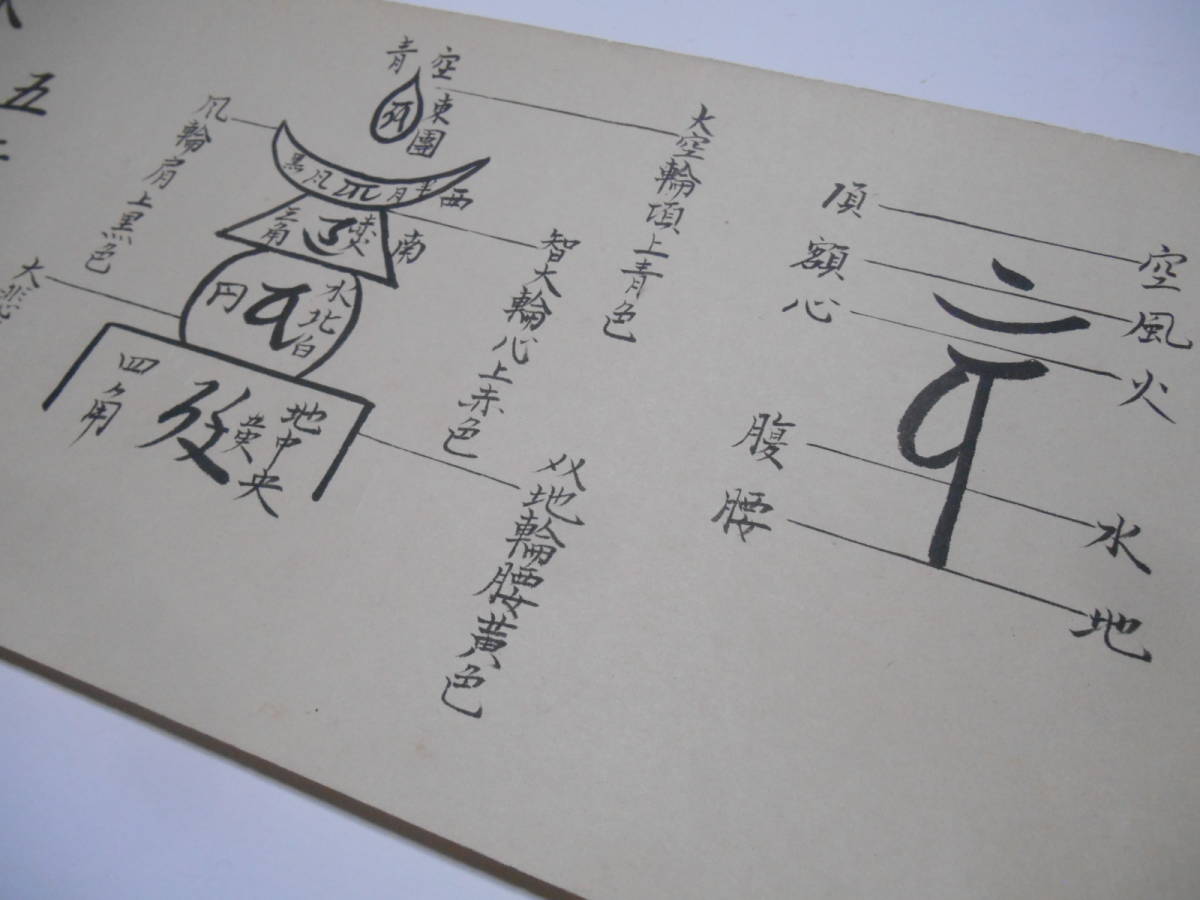 空
風
火
水
地
頂
額
心
腹
腰
大空輪頂上青色
智大輪心上赤色
地輪腰黄色
空
青
東
團
西
半月
風
黒
南
三角
水北白
円
地中央
黄
四角
風輪肩上黒色
大悲
五